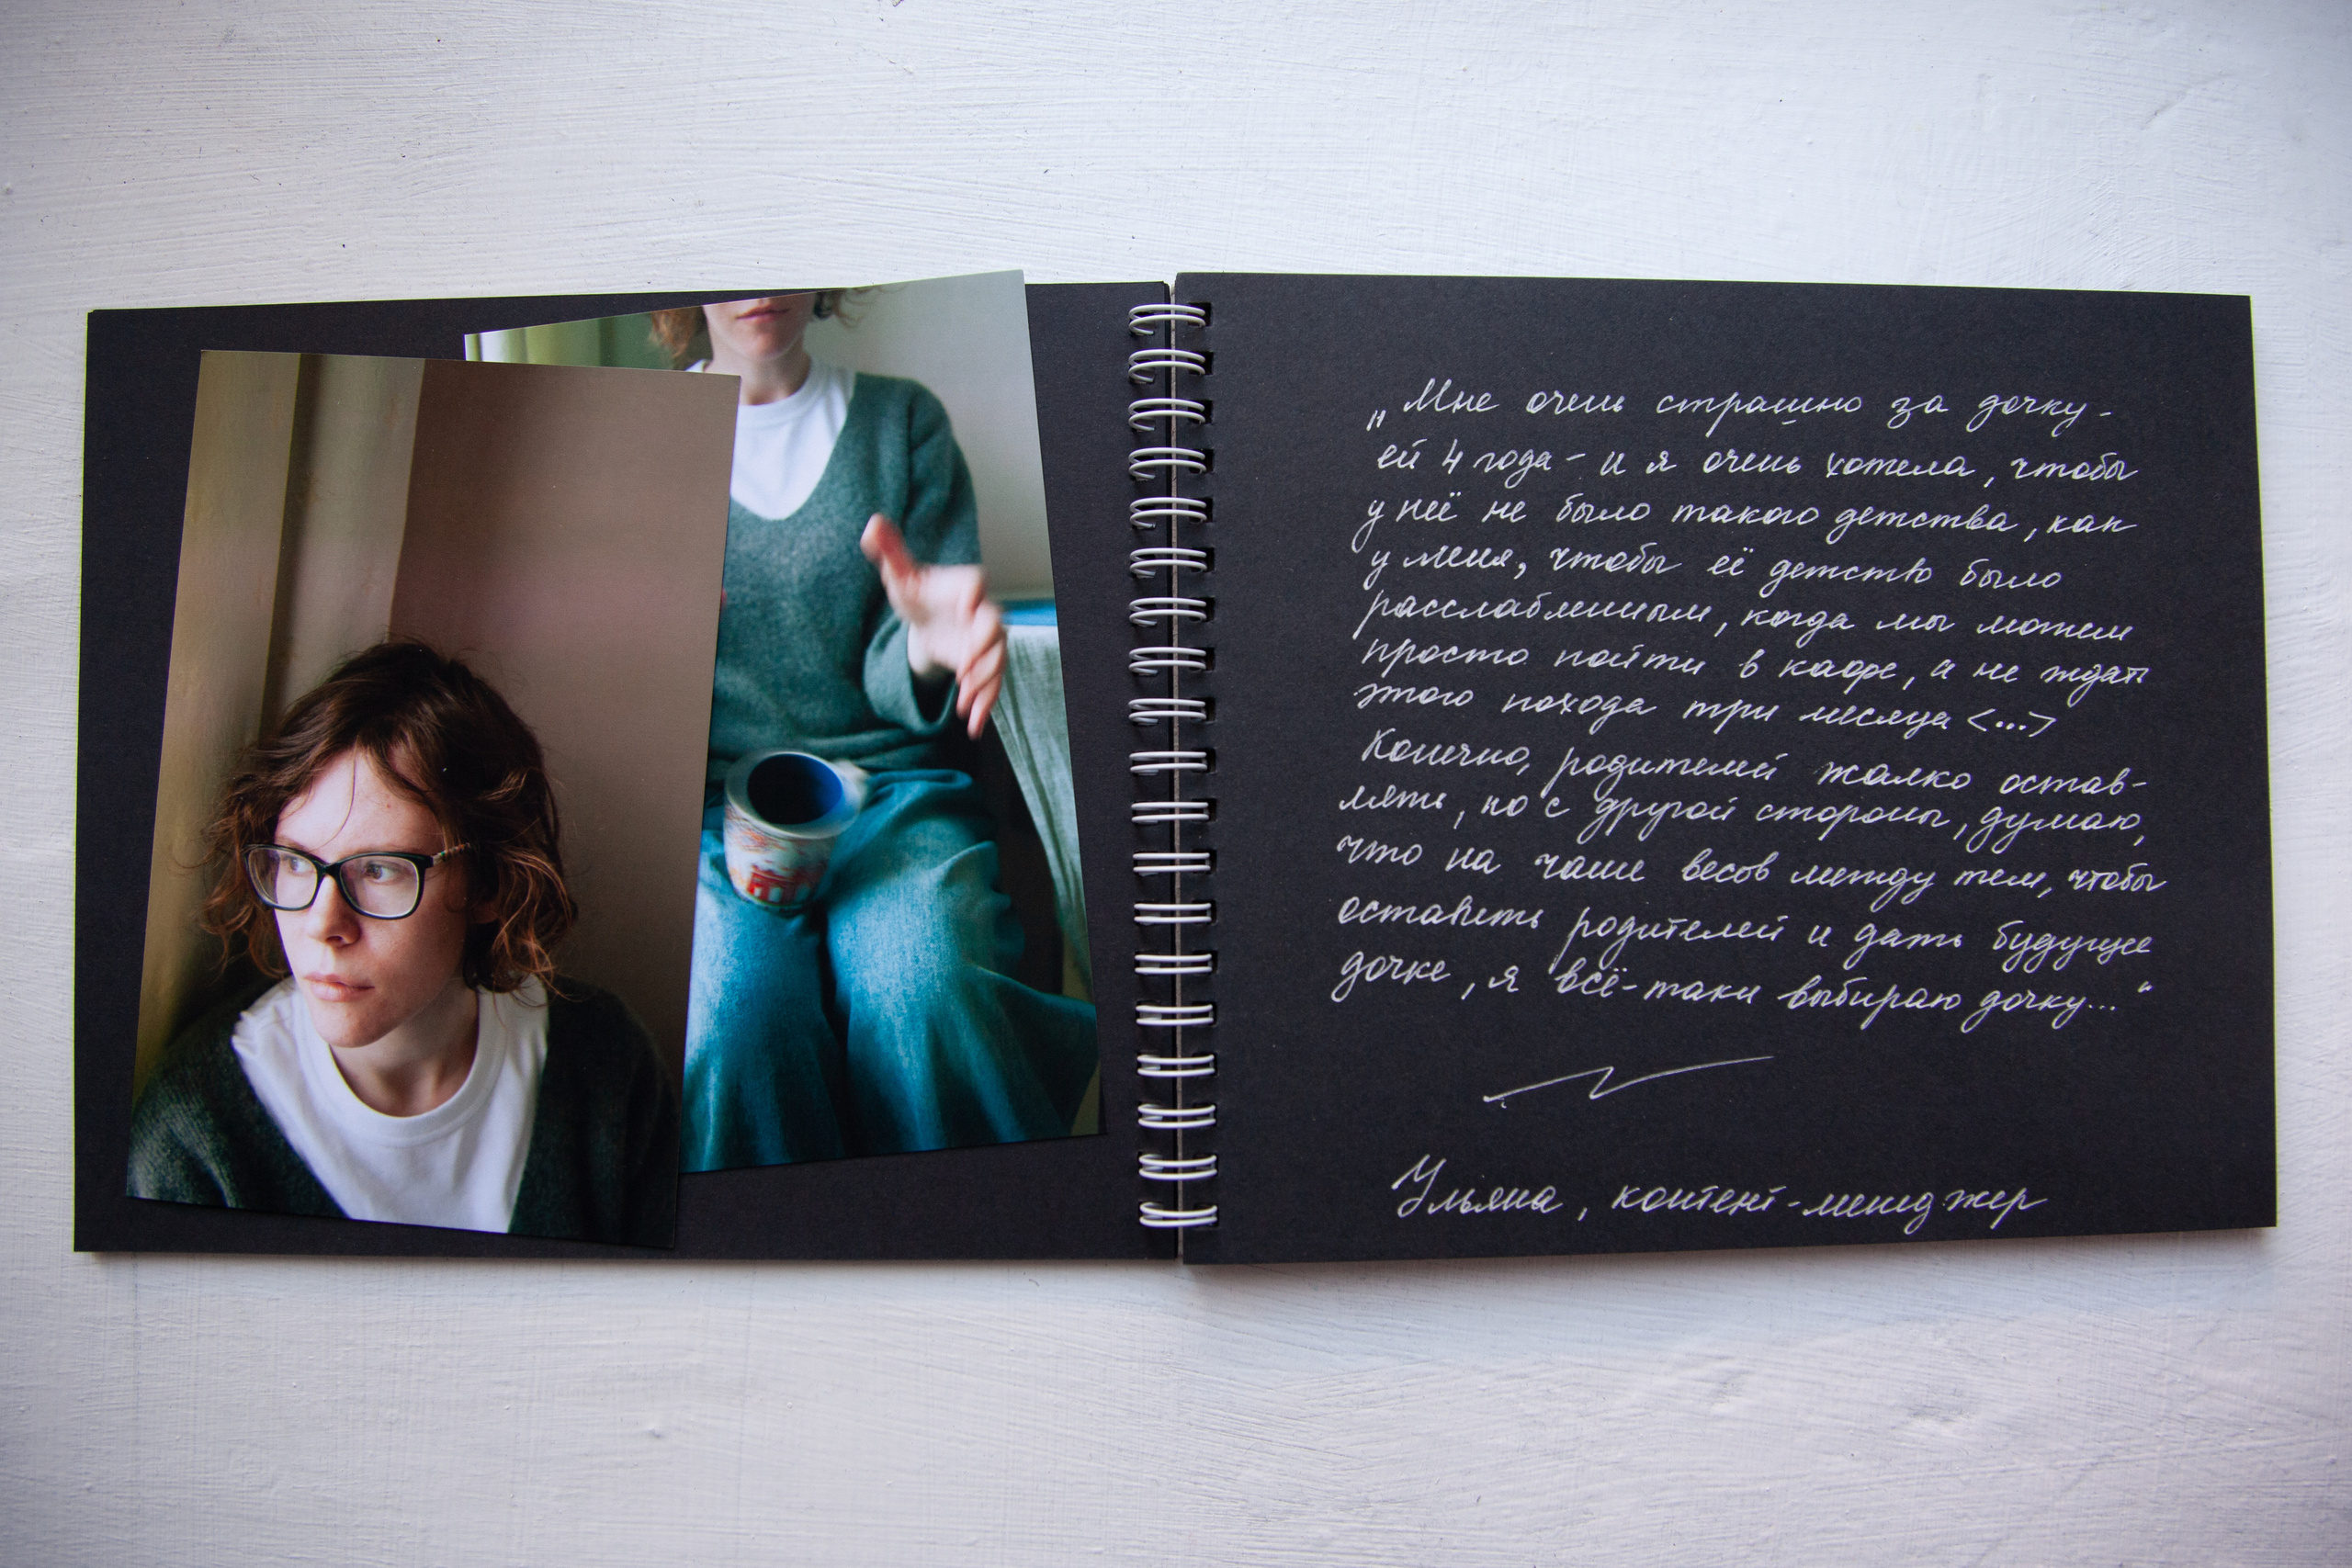 „Мне очень страшно за дочку -
ей 4 года - и я очень хотела, чтобы
у неё не было такого детства, как
у меня, чтобы её детство было
расслабленным, когда мы можем
просто пойти в кафе, а не ждать
этого похода три месяца <...>
Конечно, родителей жалко остав-
лять, но с другой стороны, думаю,
что на чаше весов между тем, чтобы
оставить родителей и дать будущее
дочке, я всё-таки выбираю дочку..."
Ульяна, контент-менеджер